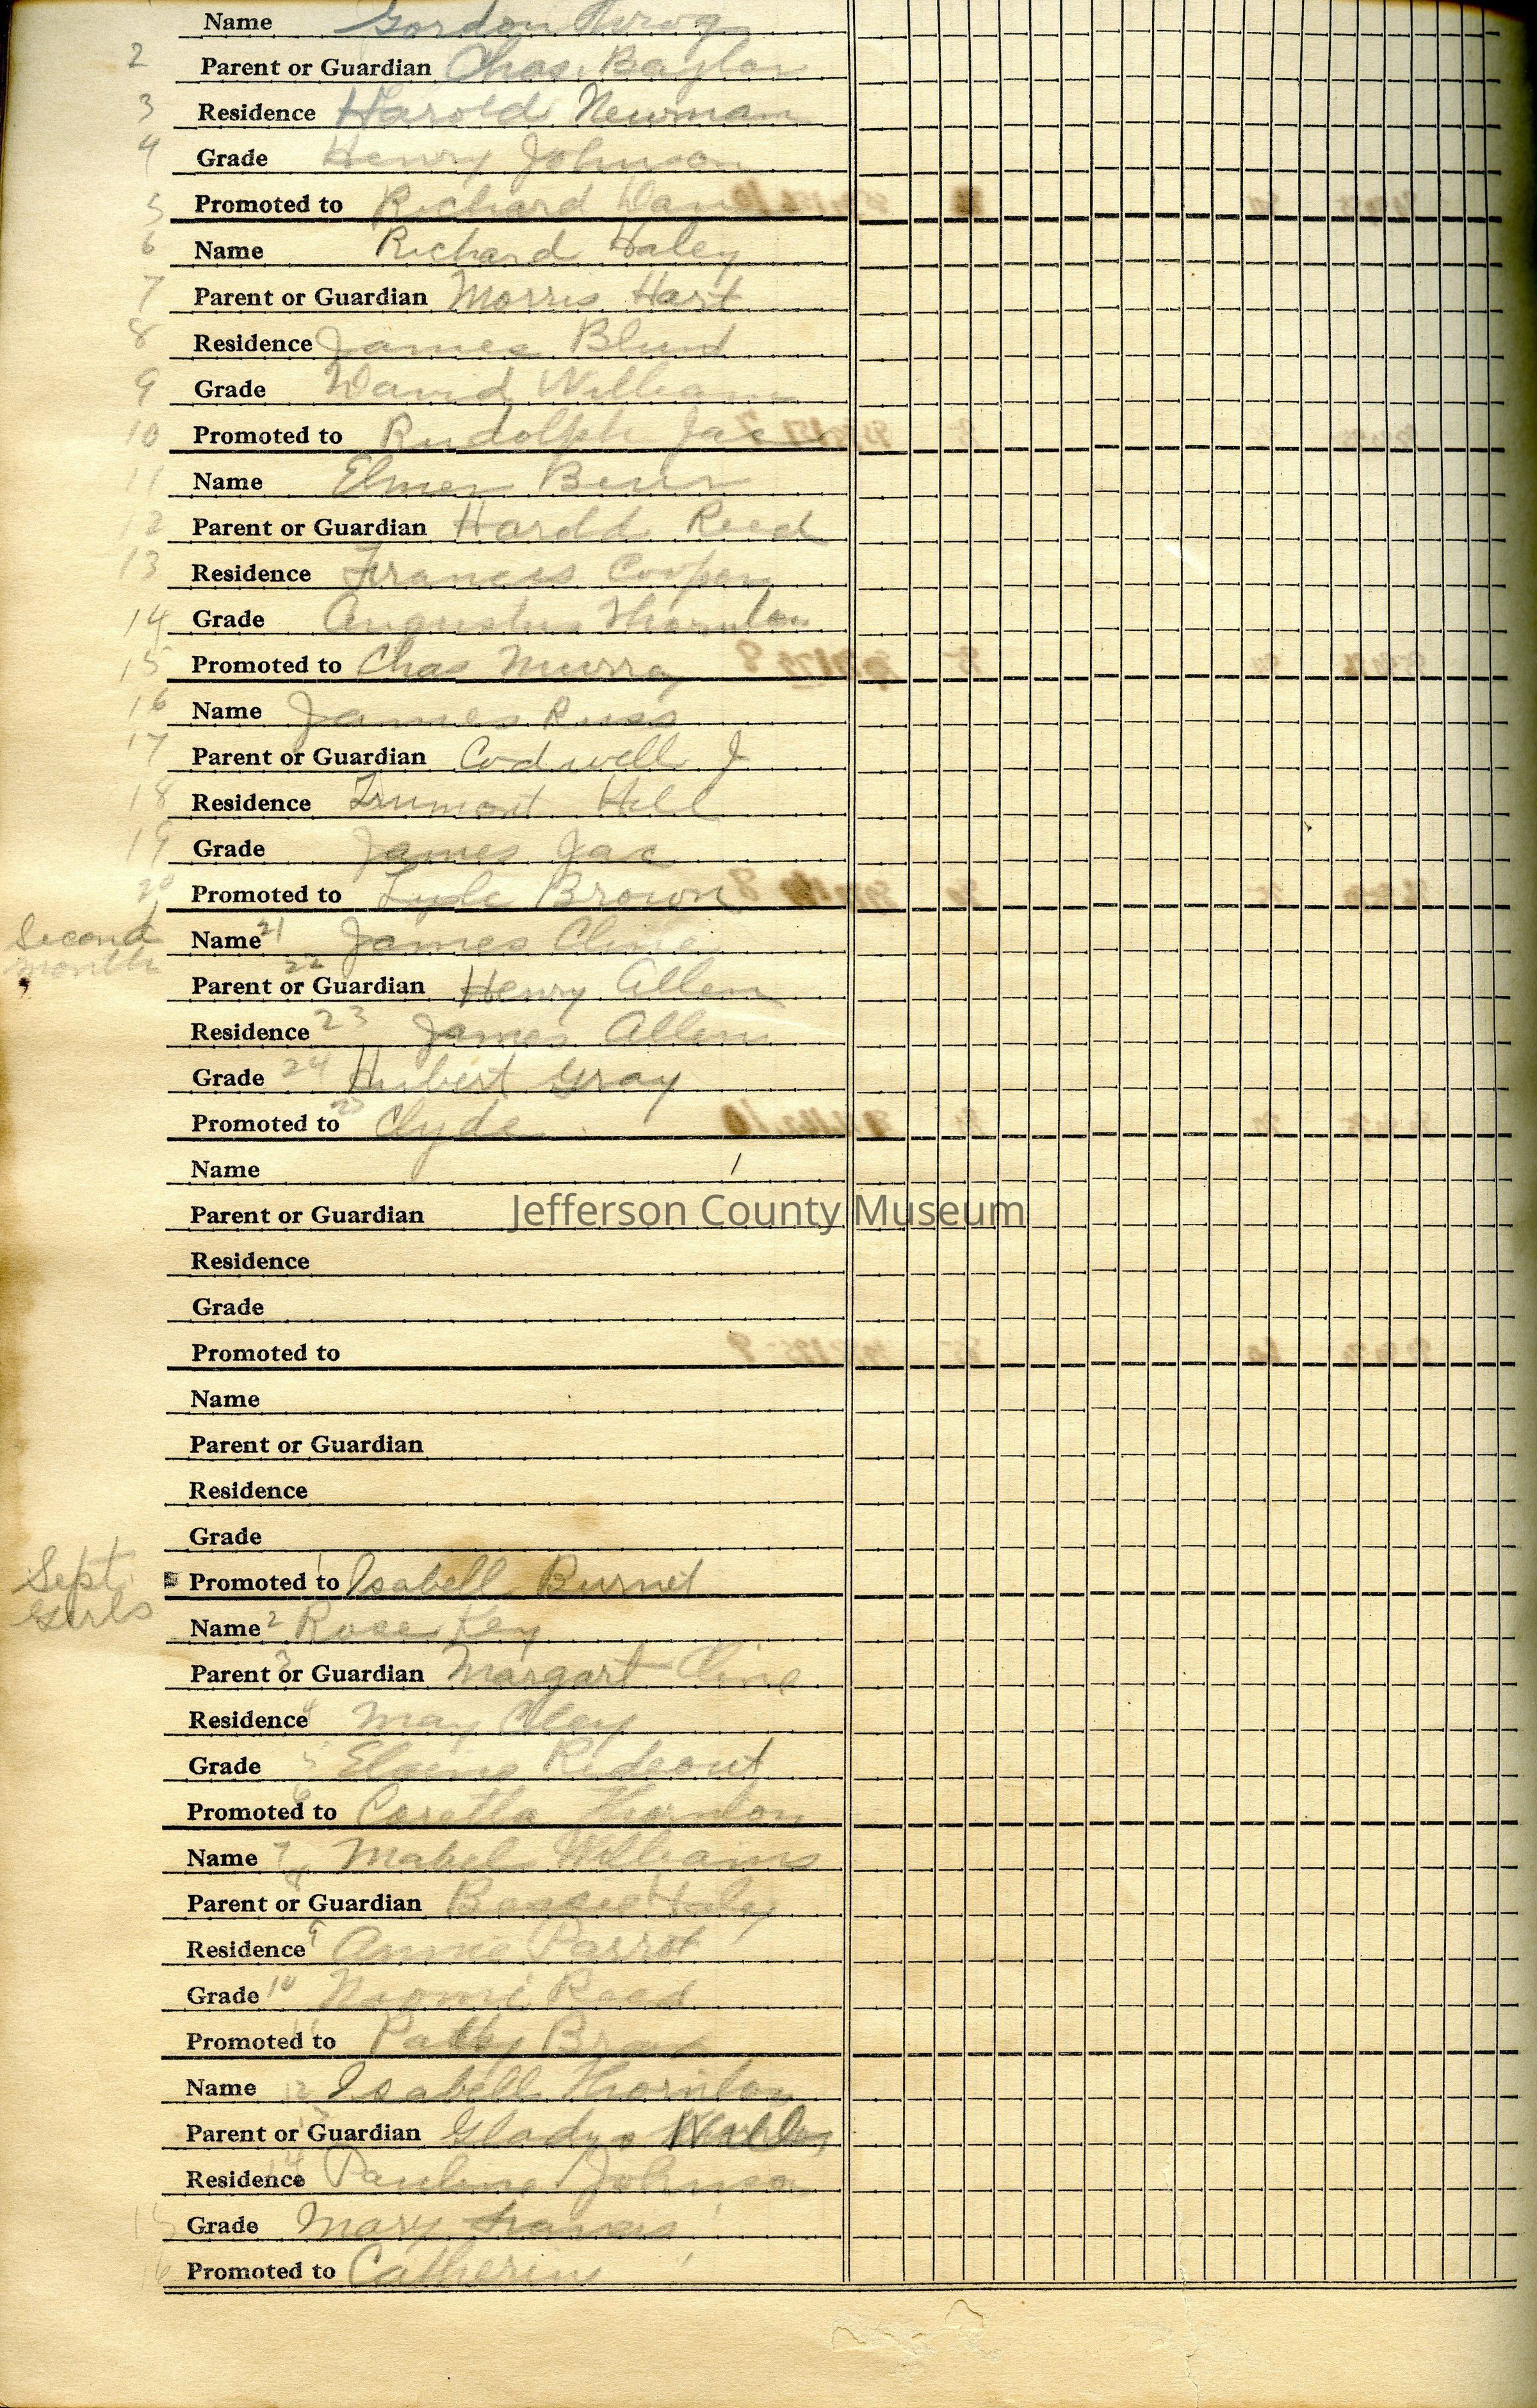 Name Gordon
2 Parent or Guardian Chas. Baylor
3 Residence Harold Newman
4 Grade Henry Johnson
5 Promoted to Richard
6 Name Richard Haley
7 Parent or Guardian Morris Hart
8 Residence James
9 Grade David Williams
10 Promoted to Rudolph Jac
11 Name Elmer
12 Parent or Guardian Harold Reed
13 Residence Francis Cooper
14 Grade Augustus Thornton
15 Promoted to Chas Murray
16 Name James Russ
17 Parent or Guardian Codwell J
18 Residence Hill
19 Grade James Jac
20 Promoted to Lyle Brown
Second month
Name 21 James Cline
22 Parent or Guardian Henry Allen
Residence 23 James Allen
Grade 24 Hubert Gray
Promoted to 25 Clyde
Name
Parent or Guardian
Jefferson County Museum
Residence
Grade
Promoted to
Name
Parent or Guardian
Residence
Grade
Sept. Girls
Promoted to 1 Isabell Burnet
Name 2 Rose Key
3 Parent or Guardian Margart Cline
Residence 4 May Clay
Grade 5 Rideout
6 Promoted to Coretta Thornton
Name 7 Mabel Williams
8 Parent or Guardian Haley
Residence 9 Annie Parrot
Grade 10 Naomi Reed
11 Promoted to Patty
Name 12 Isabell Thornton
13 Parent or Guardian Gladys
14 Residence Pauline Johnson
15 Grade Mary Francis
16 Promoted to Catherine